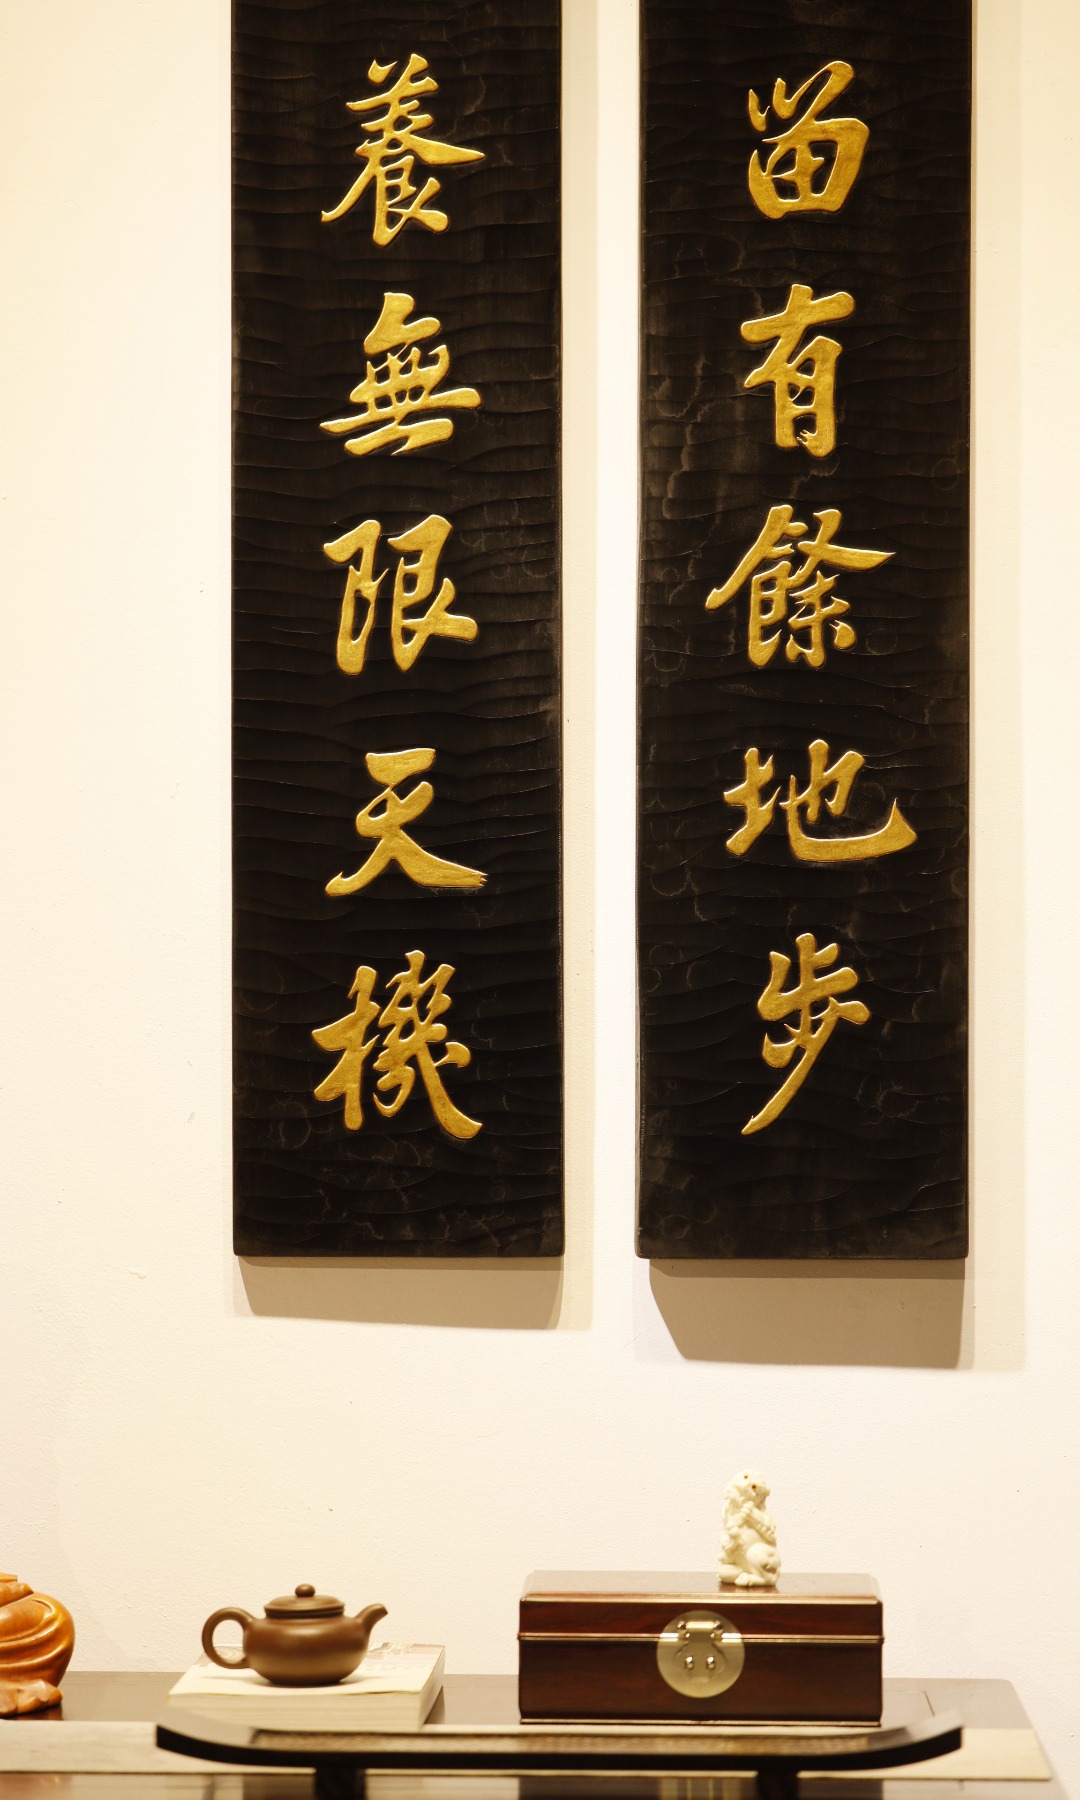 留有餘地步
養無限天機